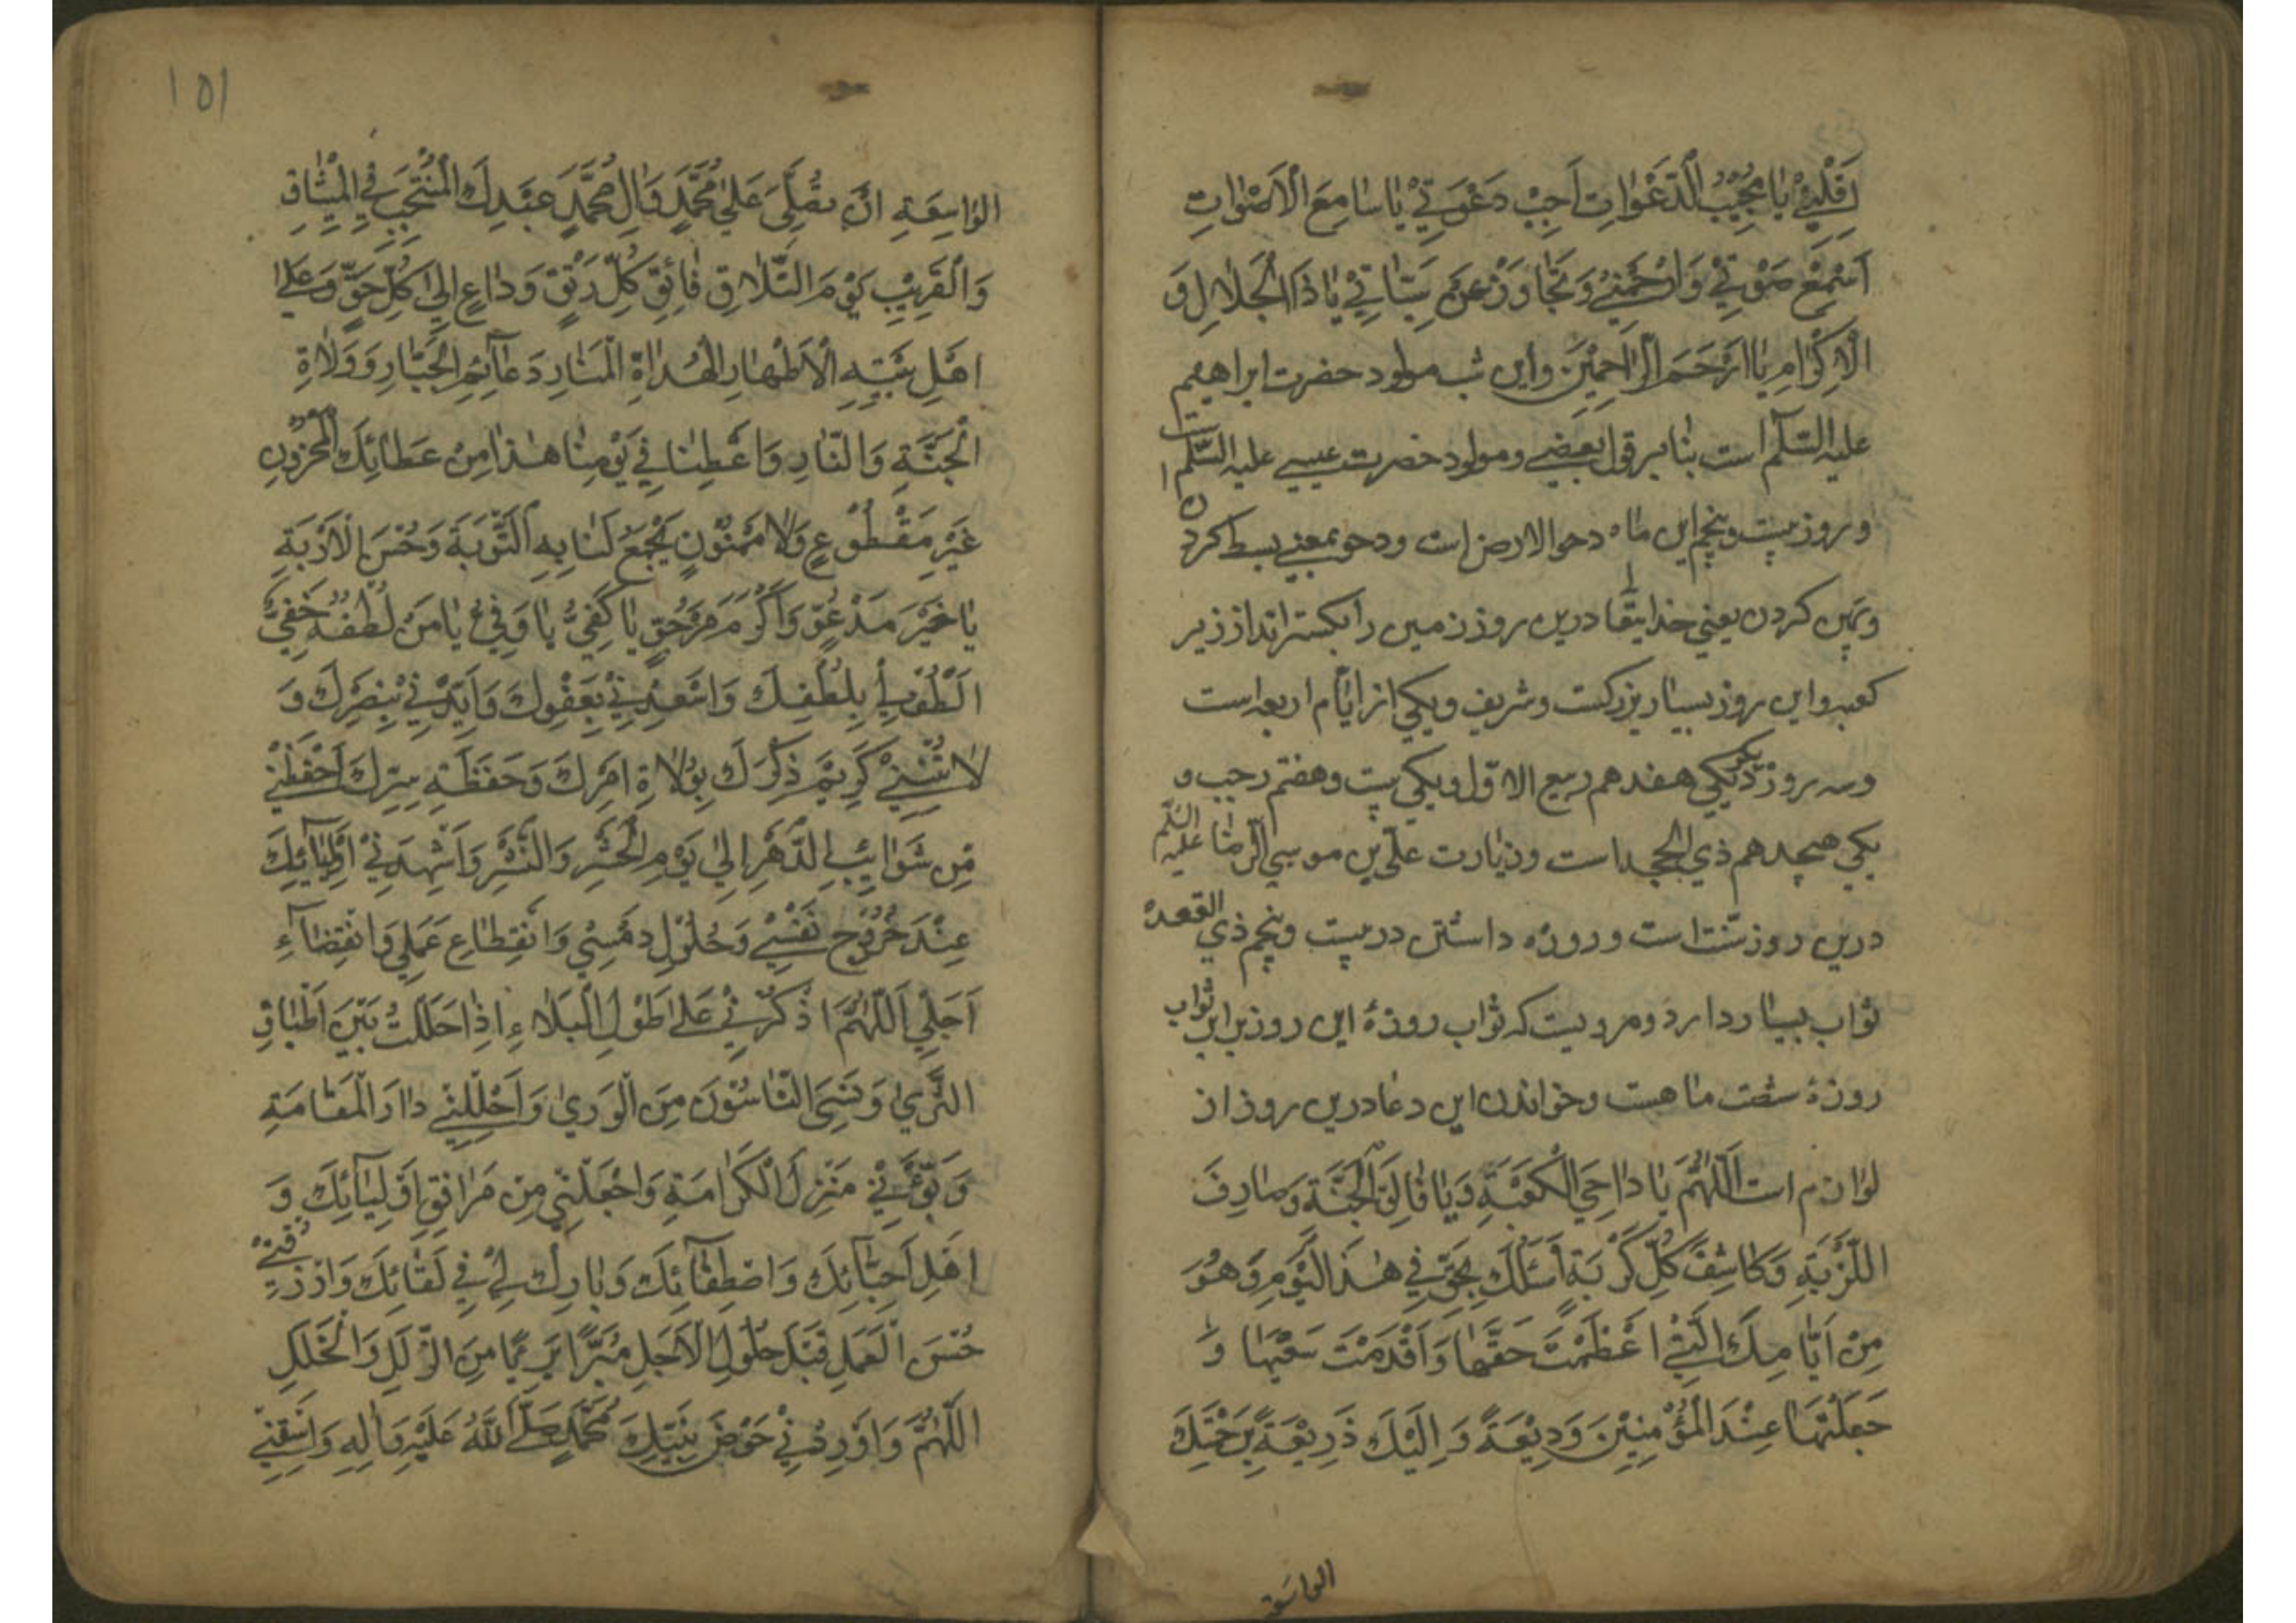 اَقِلْنِيْ يٰا مُجِيْبَ الدَّعَوٰاتِ اَجِبْ دَعْوَتِيْ يٰا سٰامِعَ الْاَصْوٰاتِ
اَسْمِعْ صَوْتِيْ وَارْحَمْنِيْ وَتَجٰاوَزْ عَنْ سَيِّئٰاتِيْ يٰا ذَا الْجَلٰالِ وَ
الْاِكْرٰامِ يٰا اَرْحَمَ الرّٰاحِمِيْنَ و این شب مولود حضرت ابراهیم
علیه السّلم است بنابر قول بعضے و مولود حضرت عیسی علیه السّلم است
و روز بیست و پنجم این ماه دحو الارض است و دحو بمعنے بسط کردن
و پهن کردن یعنی خدایتعالی درین روز زمین را بکسترانداز زیر
کعبه و این روز بسیار بزرکست و شریف و یکی از ایّام اربعه است
و سه روز دیکر یکی هفدهم ربیع الاوّل و یکی بیست و هفتم رجب و
یکی هیجدهم ذي الحجه است و زیارت علی بن موسی الرضا علیه السّلم
درین روز سنّت است و روزه داشتن در بیست و پنجم ذي القعده
ثواب بسیار دارد و مرویست که ثواب روزهٔ این روز برابر ثواب
روزهٔ شصت ماهست و خواندن این دعا درین روز از
لوازم است اَللّٰهُمَّ يٰا دٰاحِيَ الْكَعْبَةِ وَيٰا فٰالِقَ الْحَبَّةِ وَصٰارِفَ
اللَّزْبَةِ وَكٰاشِفَ كُلِّ كُرْبَةٍ اَسْئَلُكَ بِحَقِّ فِي هٰذَا الْيَوْمِ وَهُوَ
مِنْ اَيّٰامِكَ الَّتِيْ اَعْظَمْتَ حَقَّهٰا وَاَقْدَمْتَ سَبْقَهٰا وَ
جَعَلْتَهٰا عِنْدَ الْمُؤْمِنِيْنَ وَدِيْعَةً وَاِلَيْكَ ذَرِيْعَةً بِرَحْمَتِكَ
الواسعة
١٥١
الْوٰاسِعَةِ اَنْ تُصَلِّيَ عَلىٰ مُحَمَّدٍ وَاٰلِ مُحَمَّدٍ عَبْدِكَ الْمُنْتَجَبِ فِي الْمِيْثٰاقِ
وَالْقَرِيْبِ يَوْمَ التَّلٰاقِ فٰاتِقِ كُلِّ رَتْقٍ وَدٰاعٍ اِلىٰ كُلِّ حَقٍّ وَعَلىٰ
اَهْلِ بَيْتِهِ الْاَطْهٰارِ الْهُدٰاةِ الْمَنٰارِ دَعٰآئِمِ الْجَبّٰارِ وَوَلٰاةِ
الْجَنَّةِ وَالنّٰارِ وَاَعْطِنٰا فِيْ يَوْمِنٰا هٰذٰا مِنْ عَطٰائِكَ الْمَخْزُوْنِ
غَيْرِ مَقْطُوْعٍ وَلٰا مَمْنُوْنٍ تَجْمَعُ لَنٰا بِهِ التَّوْبَةَ وَحُسْنَ الْاَوْبَةِ
يٰا خَيْرَ مَدْعُوٍّ وَاَكْرَمَ مَرْجُوٍّ يٰا كَفِيُّ يٰا وَفِيُّ يٰا مَنْ لُطْفُهُ خَفِيٌّ
اُلْطُفْ لِيْ بِلُطْفِكَ وَاَسْعِدْنِيْ بِعَفْوِكَ وَاَيِّدْنِيْ بِنَصْرِكَ وَ
لٰا تُنْسِنِيْ كَرِيْمَ ذِكْرِكَ بِوُلٰاةِ اَمْرِكَ وَحَفَظَةِ سِرِّكَ اِحْفَظْنِيْ
مِنْ شَوٰائِبِ الدَّهْرِ اِلىٰ يَوْمِ الْحَشْرِ وَالنَّشْرِ وَاَشْهِدْنِيْ اَوْلِيٰآئِكَ
عِنْدَ خُرُوْجِ نَفْسِيْ وَحُلُوْلِ رَمْسِيْ وَانْقِطٰاعِ عَمَلِي وَانْقِضٰآءِ
اَجَلِي اَللّٰهُمَّ اذْكُرْنِيْ عَلىٰ طُوْلِ الْبَلٰاءِ اِذٰا حَلَلْتُ بَيْنَ اَطْبٰاقِ
الثَّرىٰ وَنَسِيَ النّٰاسُوْنَ مِنَ الْوَرىٰ وَاَحْلِلْنِيْ دٰارَ الْمَقٰامَةِ
وَبَوِّئْنِيْ مَنْزِلَ الْكَرٰامَةِ وَاجْعَلْنِيْ مِنْ مَرٰافِقِيْ اَوْلِيٰآئِكَ وَ
اَهْلِ اَحِبّٰآئِكَ وَاصْطِفٰآئِكَ وَبٰارِكْ لِيْ فِي لِقٰآئِكَ وَارْزُقْنِيْ
حُسْنَ الْعَمَلِ قَبْلَ حُلُوْلِ الْاَجَلِ مُبَرَّاً بَرِيّاً مِنَ الزَّلَلِ وَالْخَلَلِ
اَللّٰهُمَّ وَاَوْرِدْنِيْ حَوْضَ نَبِيِّكَ مُحَمَّدٍ صَلَّى اللّٰهُ عَلَيْهِ وَاٰلِهِ وَاسْقِنِيْ